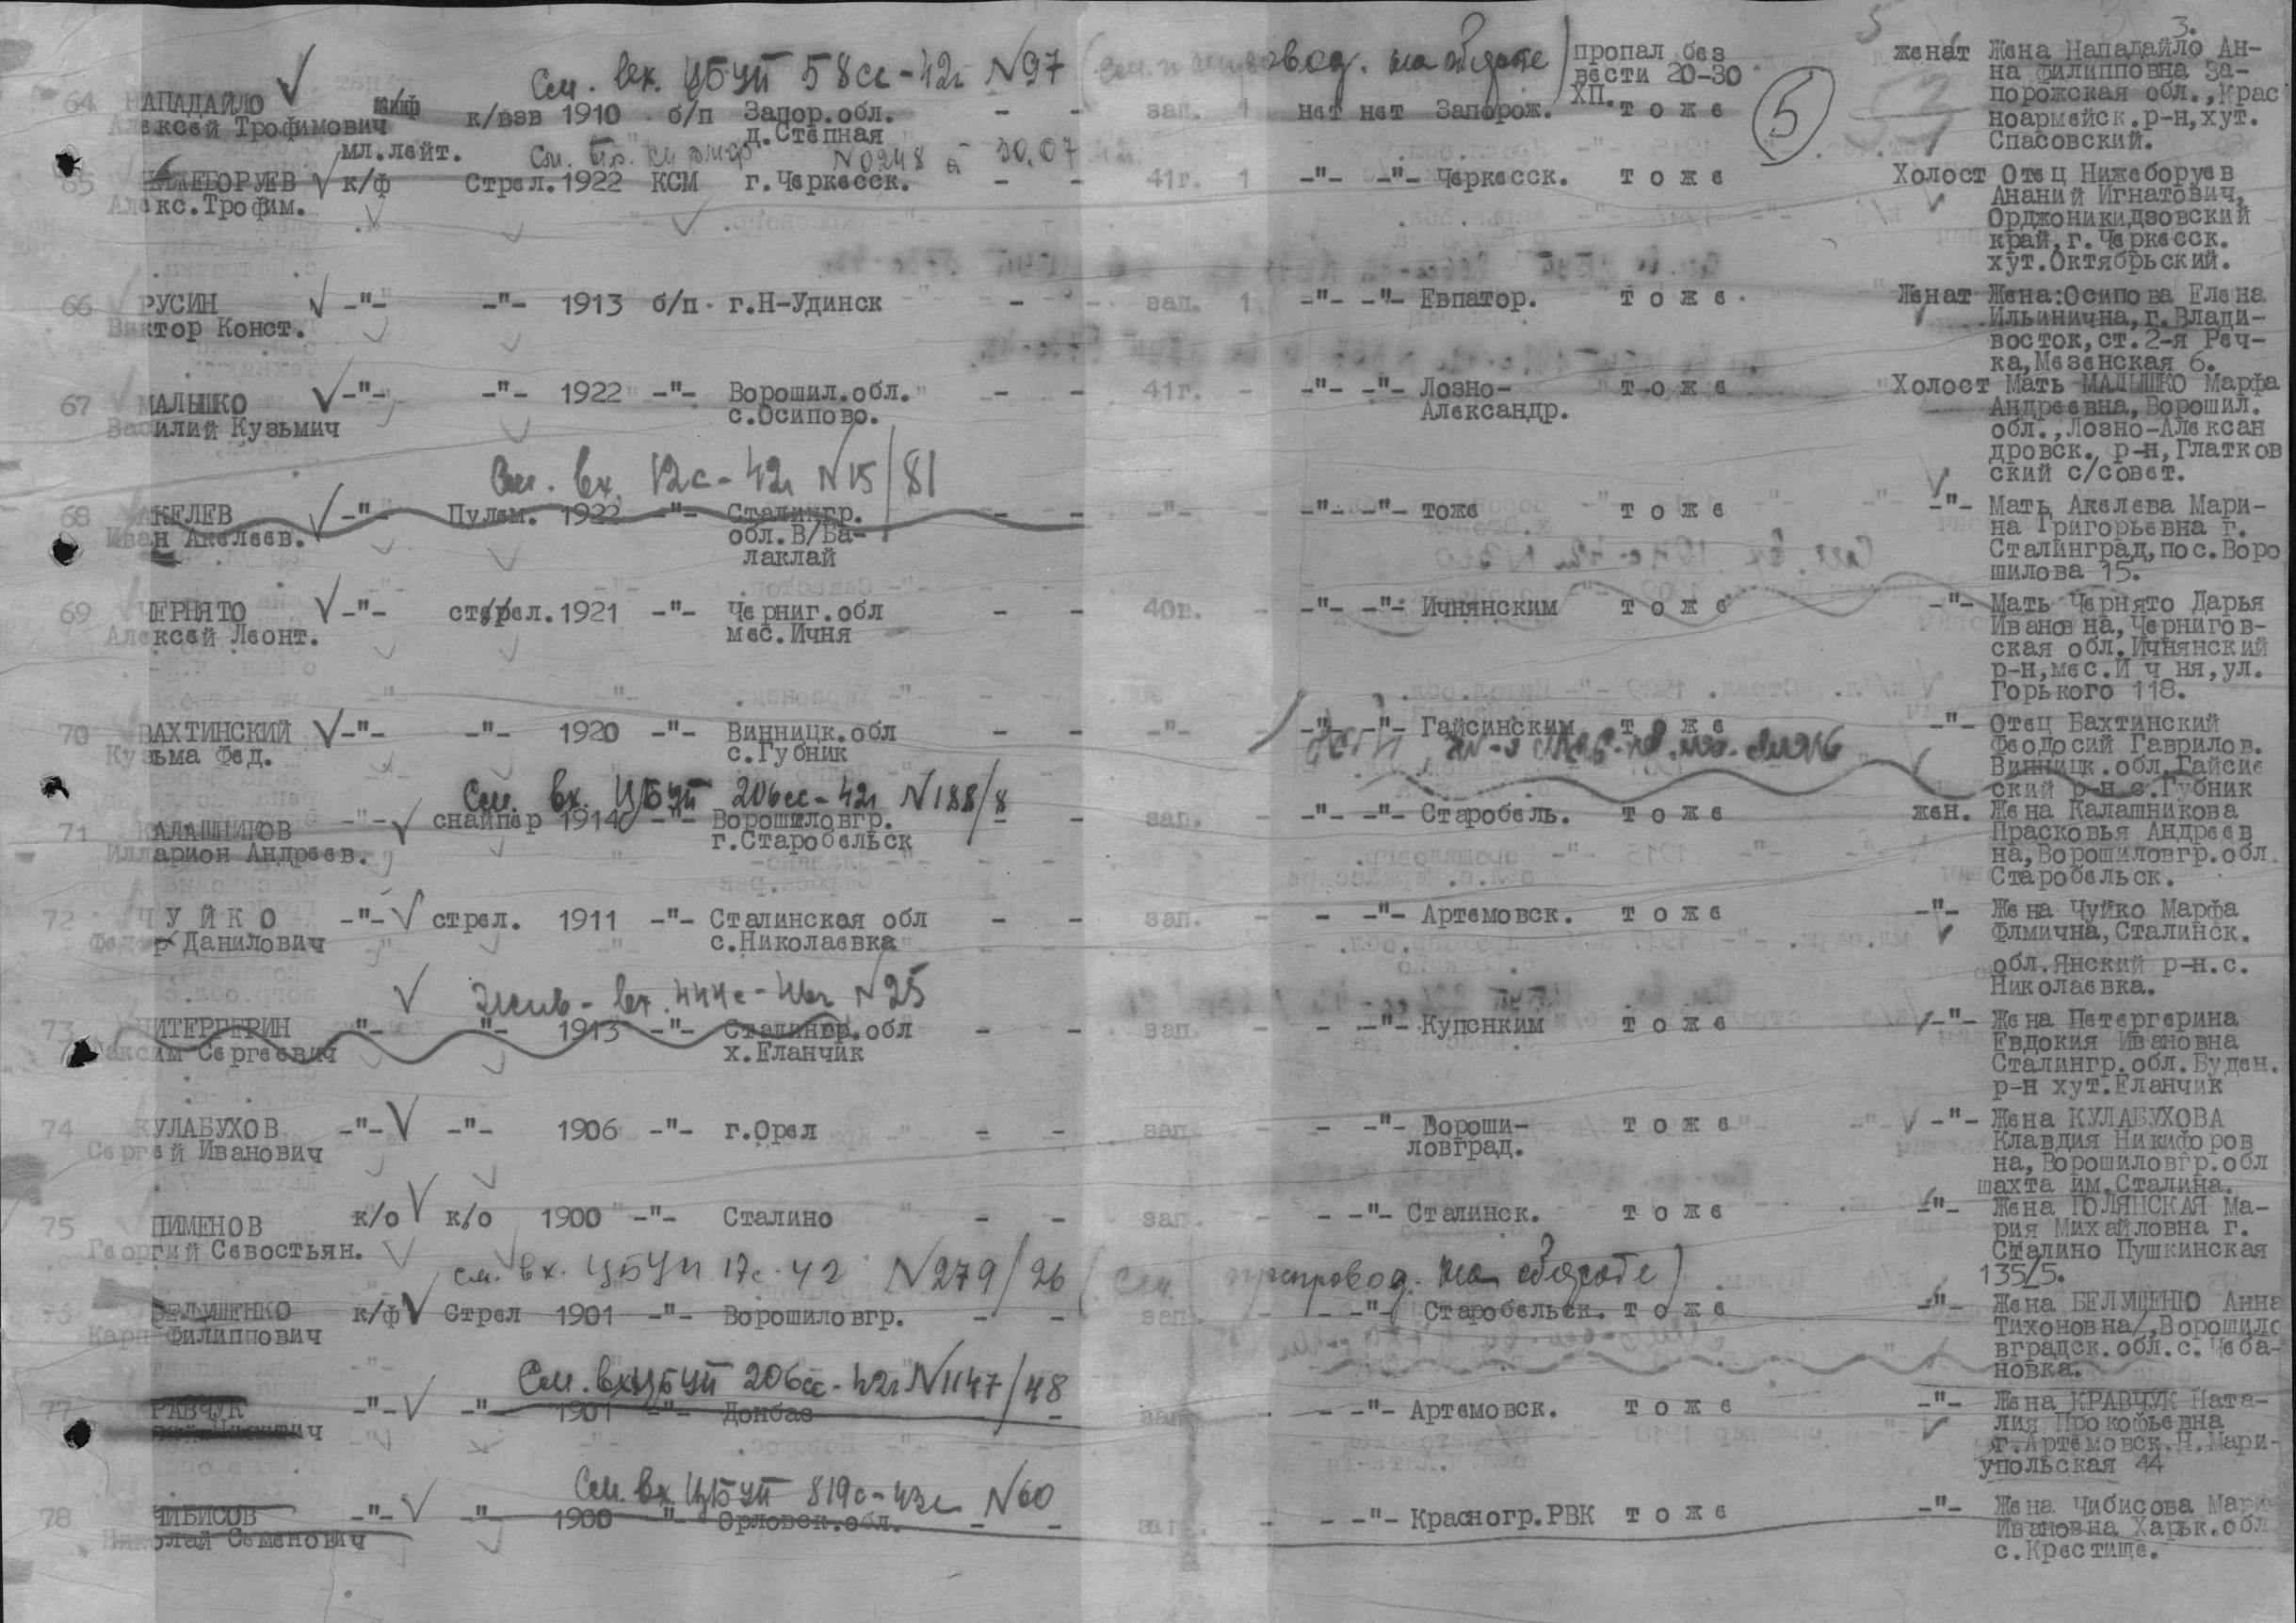 3.
См. вх. ЦБУП 58сс-42г N97 ( препровод. на обороте ) пропал без вести 20-30 ХП.
64 НАПАДАЙЛО к/взв 1910 б/п Запор.обл. - - зап. 1 нет нет Запорож. т о ж е 5 женат Жена Нападайло Ан-
Алексей Трофимович д.Степная на Филипповна За-
мл.лейт. порожская обл.,Крас
ноармейск.р-н,хут.
Спасовский.
N0248 30.07
65 НИЖЕБОРУЕВ к/ф Стрел. 1922 КСМ г.Черкесск. - - 41г. 1 -"- -"- Черкесск. т о ж е Холост Отец Нижеборуев
Алекс.Трофим. Ананий Игнатович,
Орджоникидзовский
край,г.Черкесск.
хут.Октябрьский.
66 РУСИН -"- -"- 1913 б/п г.Н-Удинск - - зап. 1 -"- -"- Евпатор. т о ж е Женат Жена:Осипова Елена
Виктор Конст. Ильинична,г.Влади-
восток,ст.2-я Реч-
ка,Мезенская 6.
67 МАЛЫШКО -"- -"- 1922 -"- Ворошил.обл. - - 41г. - -"- -"- Лозно- т о ж е Холост Мать МАЛЫШКО Марфа
Василий Кузьмич с.Осипово. Александр. Андреевна,Ворошил.
обл.,Лозно-Алексан
дровск. р-н,Глатков
ский с/совет.
См. вх. 12с-42г N15/81
68 АКЕЛЕВ -"- Пулем. 1922 -"- Сталингр. - - -"- -"- -"- тоже т о ж е -"- Мать Акелева Мари-
Иван Акелеев. обл.В/Ба- на Григорьевна г.
лаклай Сталинград,пос.Воро
шилова 15.
69 ЧЕРНЯТО -"- стрел. 1921 -"- Черниг.обл - - 40г. - -"- -"- Ичнянским т о ж е -"- Мать Чернято Дарья
Алексей Леонт. мес.Ичня Ивановна,Чернигов-
ская обл.Ичнянский
р-н,мес.И ч ня,ул.
Горького 118.
70 ВАХТИНСКИЙ -"- -"- 1920 -"- Винницк.обл - - -"- - -"- -"- Гайсинским т о ж е -"- Отец Вахтинский
Кузьма Фед. с.Губник Феодосий Гаврилов.
Винницк.обл.Гайсис
ский р-н с.Губник
См. вх. ЦБУП 206сс-42г N188/8
71 КАЛАШНИКОВ -"- снайпер 1914 -"- Ворошиловгр. - - зап. - -"- -"- Старобель. т о ж е жен. Жена Калашникова
Илларион Андреев. г.Старобельск Прасковья Андреев
на,Ворошиловгр.обл.
Старобельск.
72 Ч У Й К О -"- стрел. 1911 -"- Сталинская обл - - зап. - - -"- Артемовск. т о ж е -"- Жена Чуйко Марфа
Федор Данилович с.Николаевка Флмична,Сталинск.
обл.Янский р-н.с.
Николаевка.
вх. 444с N25
73 ПИТЕРГЕРИН -"- -"- 1913 -"- Сталингр.обл - - зап. - - -"- Купенким т о ж е -"- Жена Петергерина
Максим Сергеевич х.Еланчик Евдокия Ивановна
Сталингр.обл.Буден.
р-н хут.Еланчик
74 КУЛАБУХОВ -"- -"- 1906 -"- г.Орел - - зап. - - -"- Вороши- т о ж е -"- Жена КУЛАБУХОВА
Сергей Иванович ловград. Клавдия Никифоров
на,Ворошиловгр.обл
шахта им.Сталина.
75 ПИМЕНОВ к/о к/о 1900 -"- Сталино - - зап. - - -"- Сталинск. т о ж е -"- Жена ПОЛЯНСКАЯ Ма-
Георгий Севостьян. рия Михайловна г.
Сталино Пушкинская
135/5.
см. вх. ЦБУП 17с-42 N279/26 ( см препровод. на обороте )
76 БЕЛУЩЕНКО к/ф Стрел 1901 -"- Ворошиловгр. - - зап. - - -"- Старобельск. т о ж е -"- Жена БЕЛУЩЕНКО Анна
Карп Филиппович Тихоновна/,Ворошило
вградск.обл.с.Чеба-
новка.
См. вх ЦБУП 206сс-42г N1147/48
77 КРАВЧУК -"- -"- 1901 -"- Донбас - - зап. - - -"- Артемовск. т о ж е -"- Жена КРАВЧУК Ната-
лия Прокофьевна
г.Артемовск.Н.Мари-
упольская 44
См. вх ЦБУП 819с-43г N60
78 ЧИБИСОВ -"- -"- 1900 -"- Орловск.обл. - - зап. - - -"- Красногр.РВК т о ж е -"- Жена Чибисова Мари
Николай Семенович Ивановна Харьк.обл
с.Крестище.